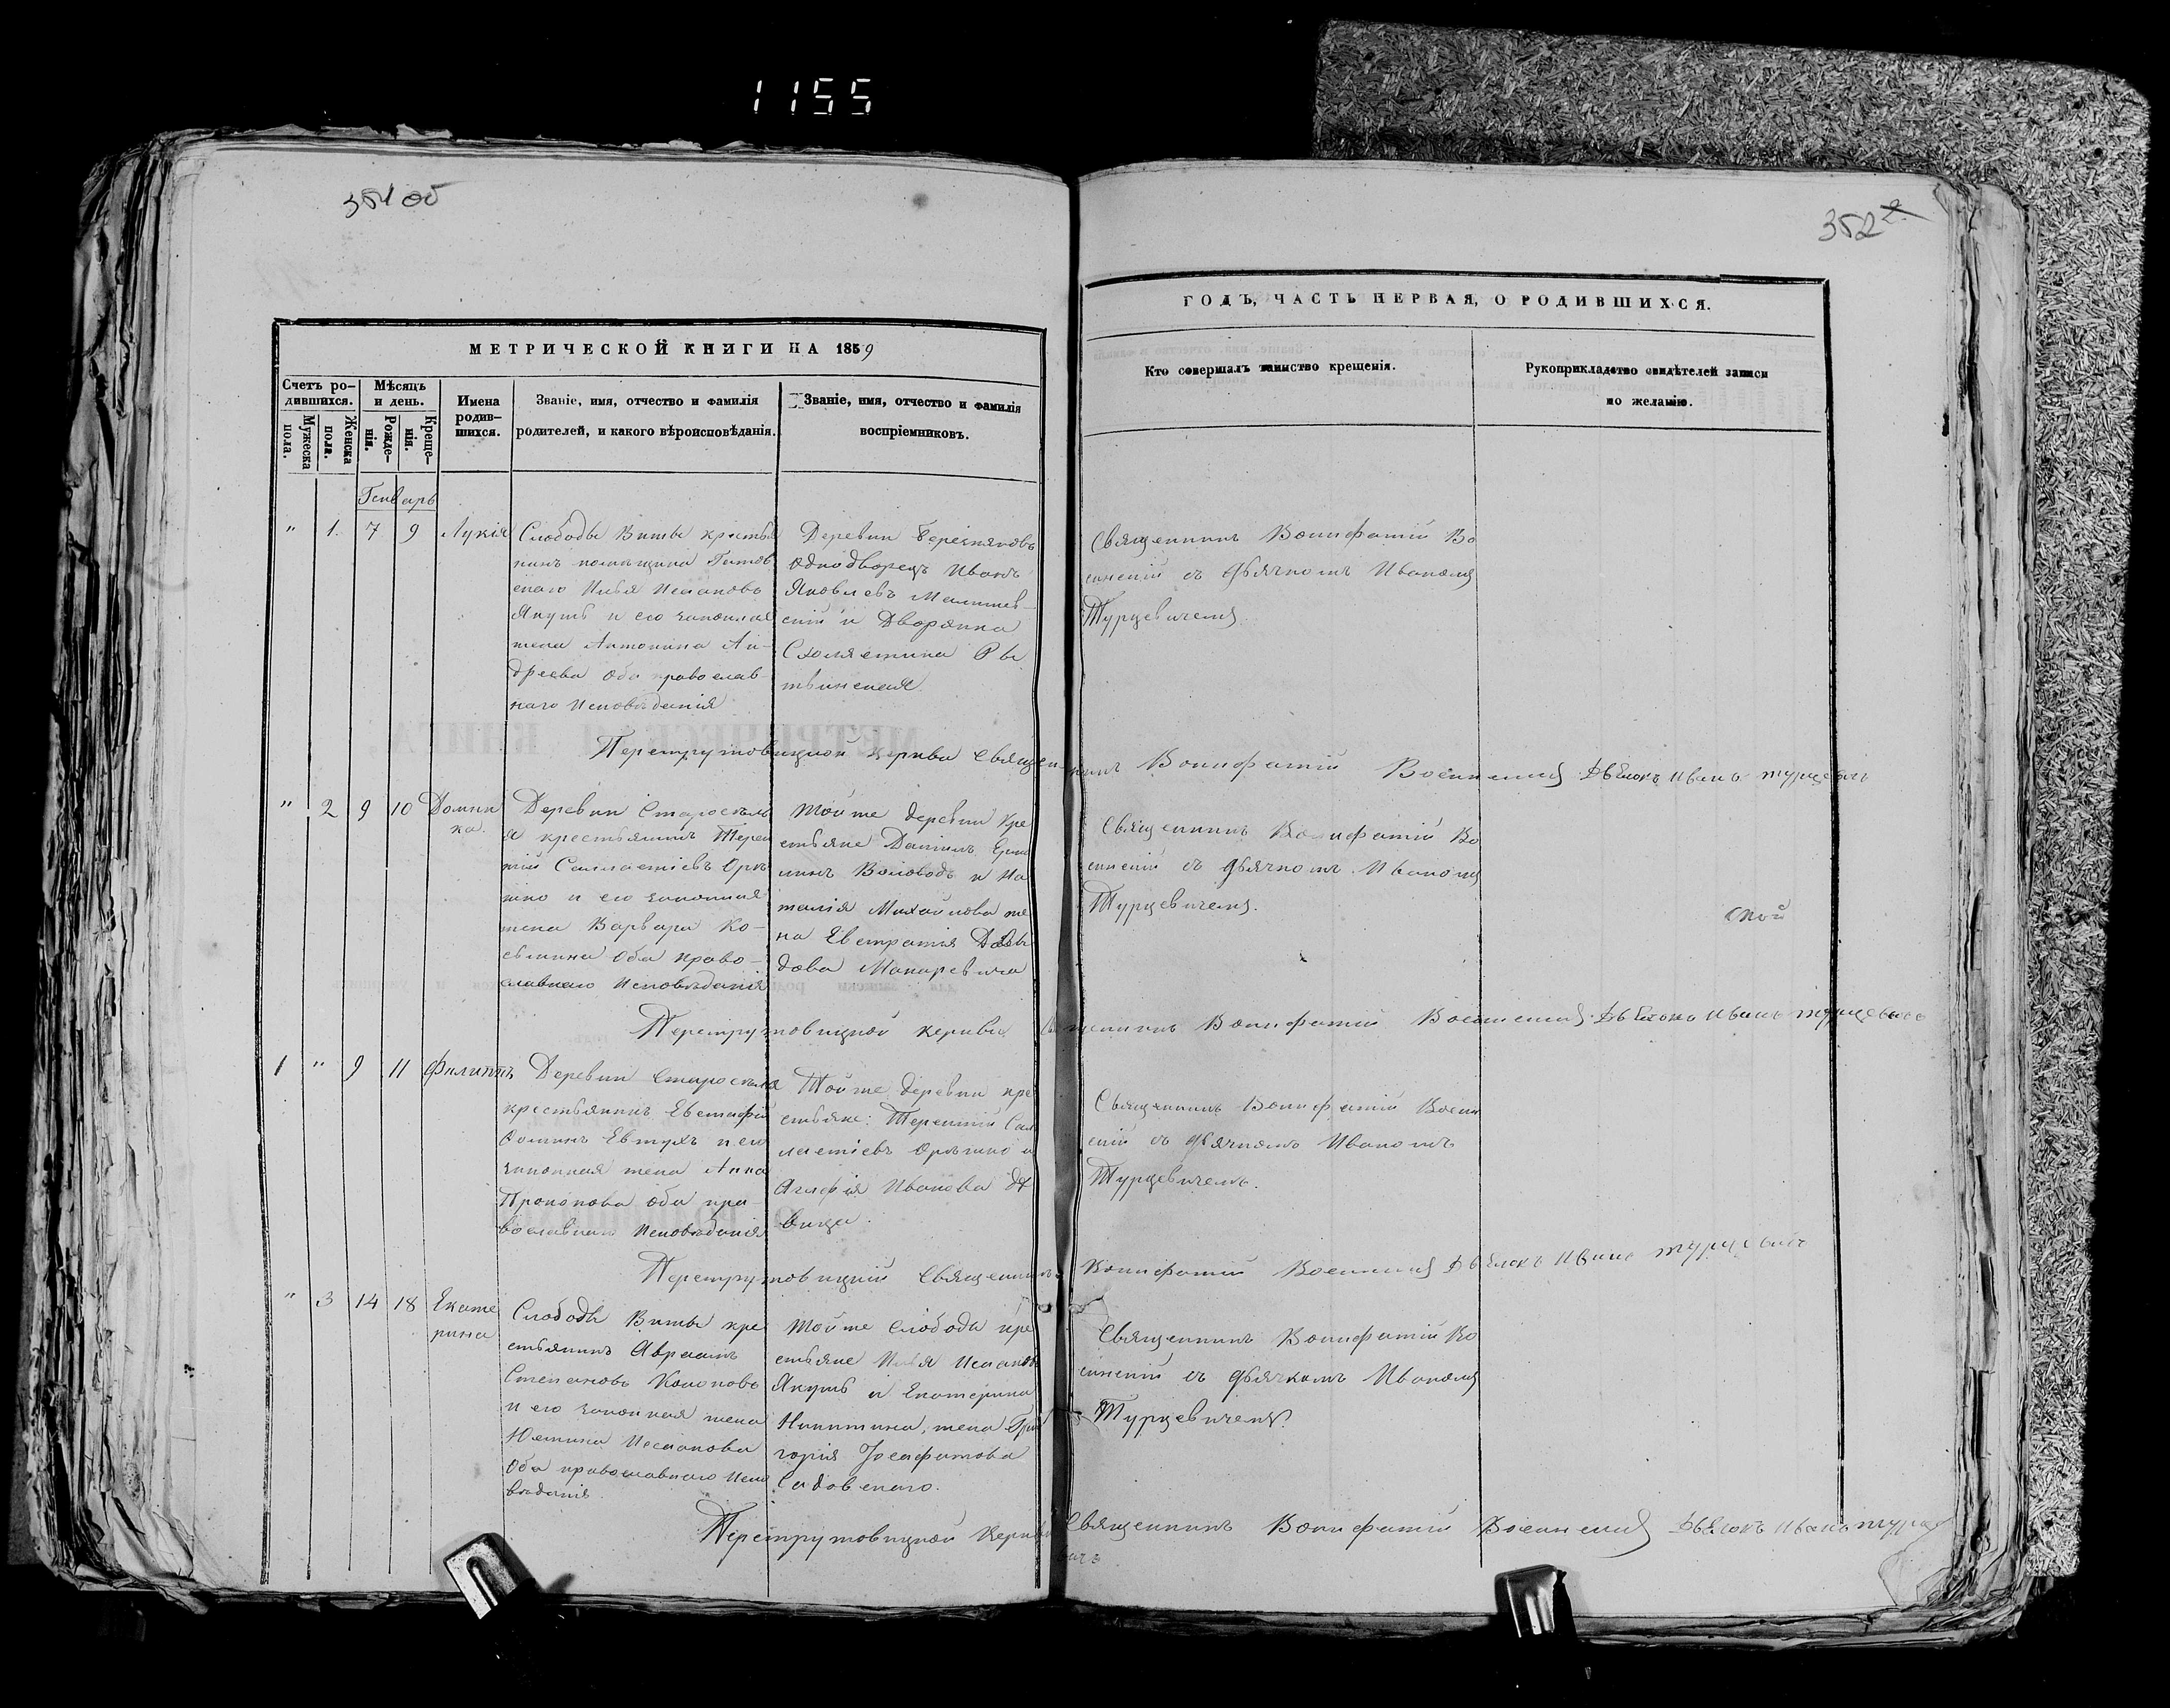 1155
351 об
352
МЕТРИЧЕСКОЙ КНИГИ НА 1859
Счетъ ро-
дившихся.
Мужеска
пола.
Женска
пола.
Мѣсяцъ
и день.
Рожде-
нія.
Креще-
нія.
Имена
родив-
шихся.
Званіе, имя, отчество и фамилія
родителей, и какого вѣроисповѣданія.
Званіе, имя, отчество и фамилія
воспріемниковъ.
ГОДЪ, ЧАСТЬ ПЕРВАЯ, О РОДИВШИХСЯ.
Кто совершалъ таинство крещенія.
Рукоприкладство свидѣтелей записи
по желанію.
Генварь
" 1. 7 9 Лукія
Слободы Виты крестья
нинъ помѣщика
Илья Исааковъ
Якушъ и его законная
жена Антонина Ан-
дреева оба православ-
наго Исповѣданія
Деревни Березняковъ
однодворецъ Иванъ
Яковлевъ
и Дворянка
Священникъ Вонифатій Во
инскій съ дьячкомъ Иваномъ
Турцевичемъ
Перетрутовицкой церкви Священникъ Вонифатій Воинскій Дьячокъ Иванъ Турцевичъ
" 2 9 10 Домни
ка.
Деревни Старосѣль
я крестьянинъ Терен
тій
и его законная
жена Варвара Ко-
сьмина оба право-
славнаго Исповѣданія
Тойже деревни кре
стьяне Даніилъ
и На
талія Михайлова же
на Евстратія Давы
дова Макаревича
Священникъ Вонифатій Во
инскій съ дьячкомъ Иваномъ
Турцевичемъ.
ской
Перетрутовицкой церкви Священникъ Вонифатій Воинскій Дьячокъ Иванъ Турцевичъ
1 " 9 11 Филиппъ
Деревни Старосѣлья
крестьянинъ Евстафій
Фоминъ Евтухъ и его
законная жена Анна
Прокопова оба пра-
вославнаго Исповѣданія
Тойже деревни кре
стьяне: Терентій
и
Агафія Иванова дѣ
вица.
Священникъ Вонифатій Воин
скій съ дьячкомъ Иваномъ
Турцевичемъ.
Перетрутовицкій Священникъ Вонифатій Воинскій Дьячокъ Иванъ Турцевичъ
" 3 14 18 Екате
рина
Слободы Виты кре
стьянинъ Авраамъ
Степановъ Кононовъ
и его законная жена
Юстина Исаакова
Оба православнаго Испо
вѣданія
Тойже Слободы кре
стьяне Илья Исааковъ
Якушъ и Екатерина
Никитина, жена Гри
горія Іосафатова
Садовскаго.
Священникъ Вонифатій Во
инскій съ дьячкомъ Иваномъ
Турцевичемъ.
Перетрутовицкой Церкви Священникъ Вонифатій Воинскій Дьячокъ Иванъ Турце
вичъ